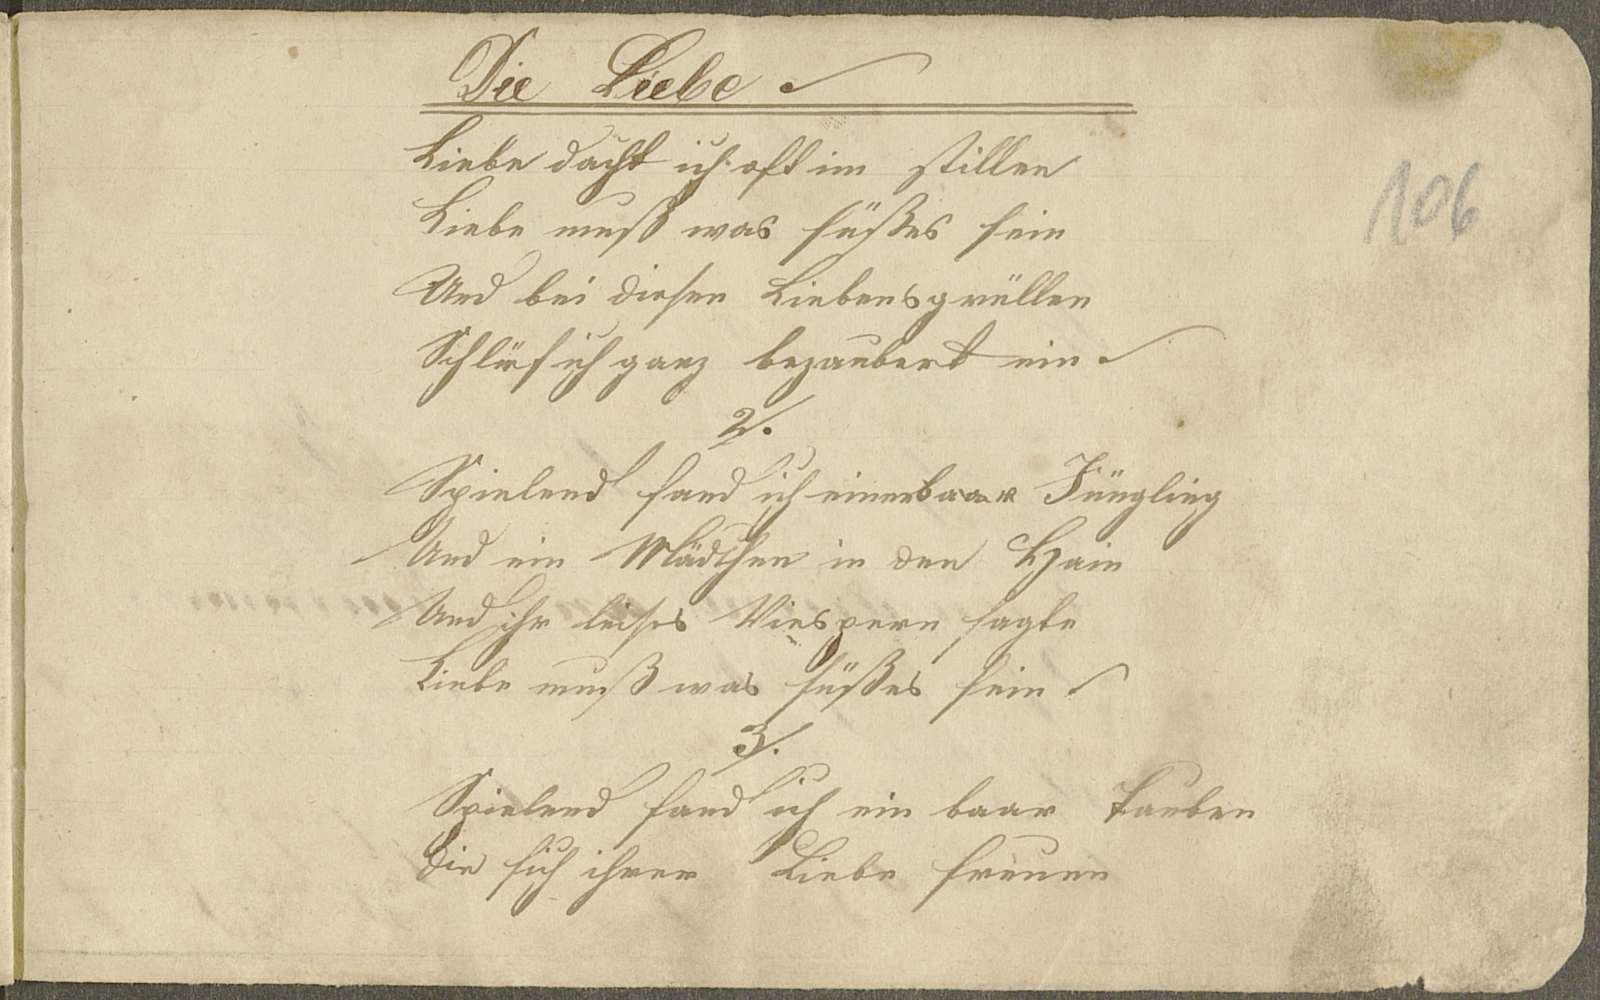 Die Liebe
Liebe dacht ich oft im stillen
106
Liebe muß was süßes sein
Und bei diesen Liebensgrüllen
Schlief ich ganz bezaubert ein
2.
Spielend fand ich einen baar Jüngling
Und ein Mädchen in den Hain
Und ihr leises Viespern sagte
Liebe muß was süßes sein
3.
Spielend fand ich ein baar Tauben
Die sich ihrer Liebe freuen